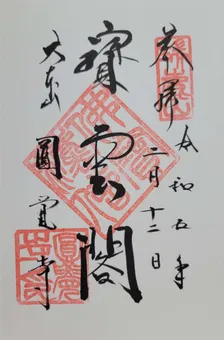 奉拝
令和五年
二月十二日
寶雲閣
大本山
圓覺寺